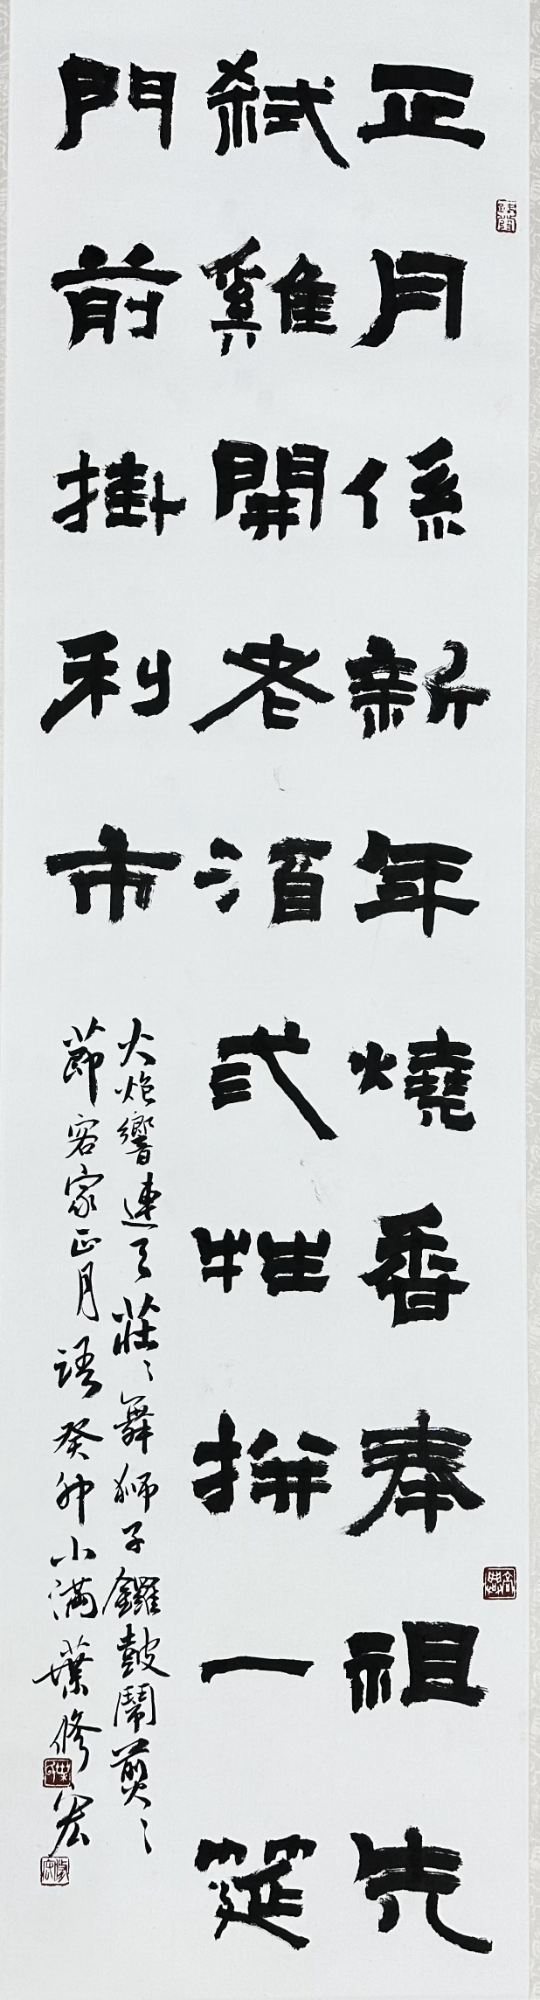 正月係新年燒香奉祖先
弒雞開老酒弍牲拚一筵
門前掛利市
火炮響連天莊〻舞獅子鑼鼓鬧煎〻
節客家正月語癸卯小滿葉修宏